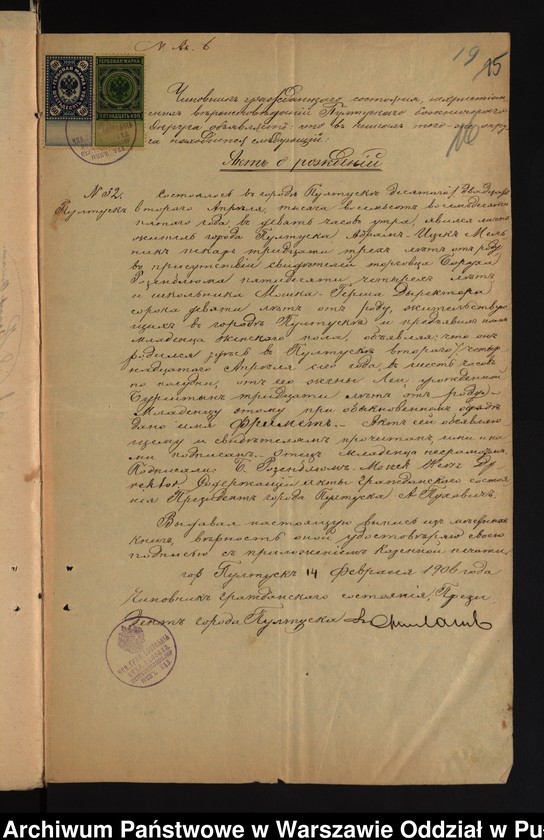 N Ак. 6
19
15
ГЕРБОВАЯ МАРКА
Чиновникъ гражданскаго состоянія, нехристіан
скихъ вѣроисповѣданій Пултускаго
округа объявляетъ: что въ книгахъ того окру
га находится слѣдующій:
Актъ о рожденіи
№ 52.
Пултускъ
Состоялся въ городѣ Пултускѣ десятаго / двадцать
втораго Апрѣля, тысяча восемьсотъ восемьдесятъ
пятаго года въ девять часовъ утра, явился лично
житель города Пултуска Абрамъ-Ицекъ Мель
никъ пекарь тридцати трехъ лѣтъ отъ роду
въ присутствіи свидѣтелей торговца Боруха
Розенблюма пятидесяти четырехъ лѣтъ
и школьника Мошка-Герша Дыректора
сорока девяти лѣтъ отъ роду, жительствую
щихъ въ городѣ Пултускѣ и предъявилъ намъ
младенца женскаго пола, объявляя: что онъ
родился здѣсь въ Пултускѣ втораго / четыр
надцатаго Апрѣля сего года, въ шесть часовъ
по полудни, отъ его жены Леи урожденной
тридцати лѣтъ отъ роду.-
Младенцу этому при обыкновенномъ обрядѣ
дано имя Фрыметъ. Актъ сей объявляю
щему и свидѣтелямъ прочитанъ, ими и на
ми подписанъ. Отецъ младенца неграмотенъ.
Подписали: Б. Розенблюмъ. Мошекъ Dy
rektor. Содержащій акты гражданскаго состоя
нія Президентъ города Пултуска А.
Выдавая настоящую выпись изъ метрическихъ
книгъ, вѣрность оной удостовѣряю своею
подписью съ приложеніемъ казенной печати.
гор. Пултускъ 14 Февраля 1906 года
Чиновникъ гражданскаго состоянія, Прези
дентъ города Пултуска
Archiwum Państwowe w Warszawie Oddział w Pu